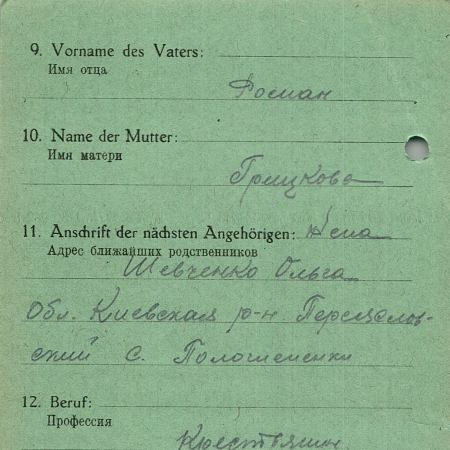 9. Vorname des Vaters:
Имя отца
Роман
10. Name der Mutter:
Имя матери
Грицкова
11. Anschrift der nächsten Angehörigen: Жена
Адрес ближайших родственников
Шевченко Ольга
Обл. Киевская р-н. Переяслов-
ский с. Пологи
12. Beruf:
Профессия
Крестьянин